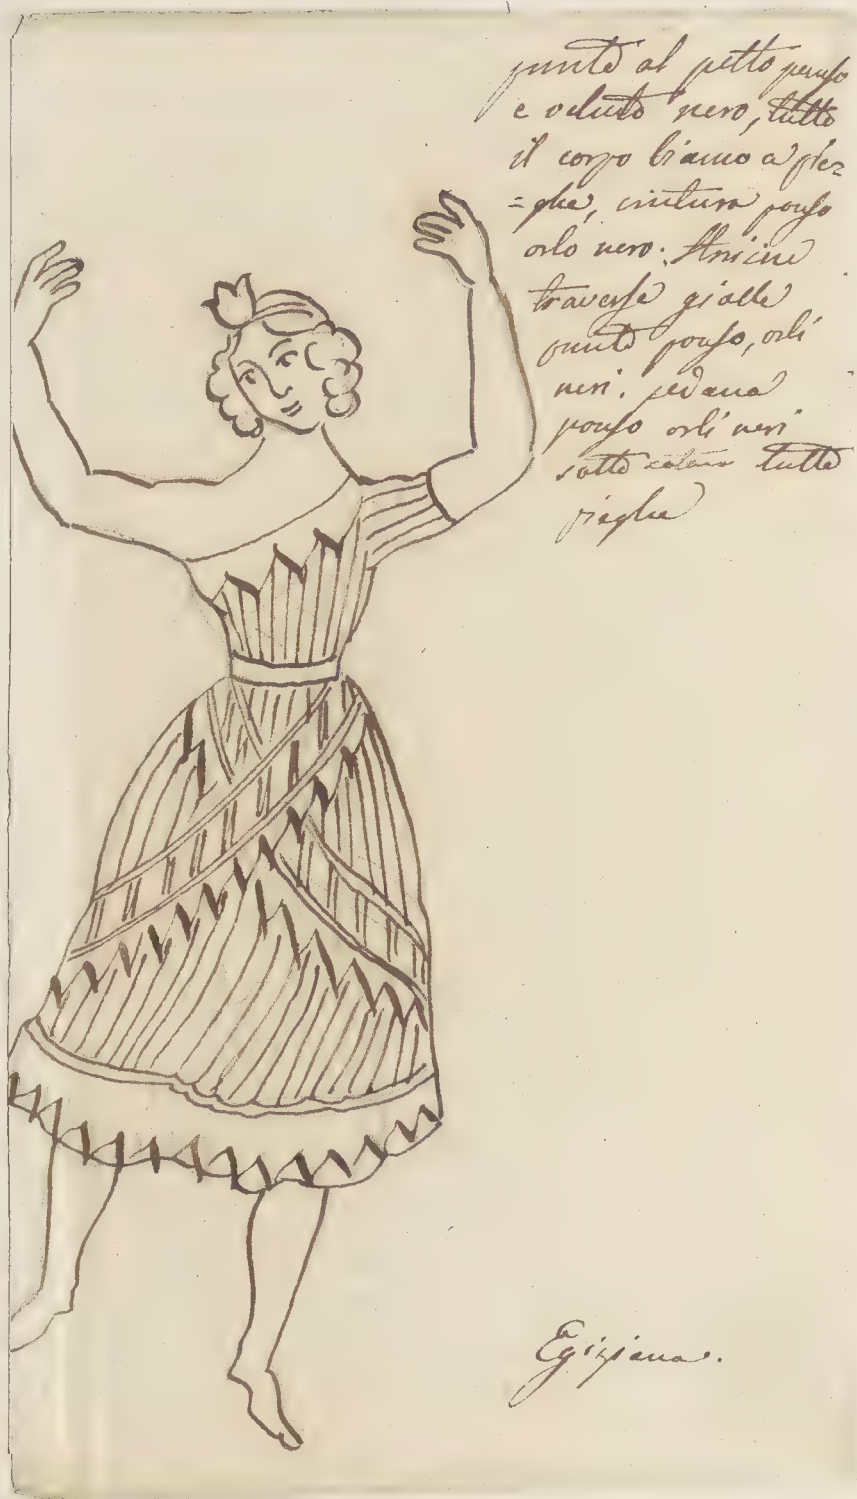 punte al petto ponso
e veluto nero, tutto
il corpo bianco a pie=
=ghe, cintura ponso
orlo nero. Striscie
traverse gialle
punte ponso, orli
neri. pedana
ponso orli neri
sotto tutto
pieghe
Egiziana.